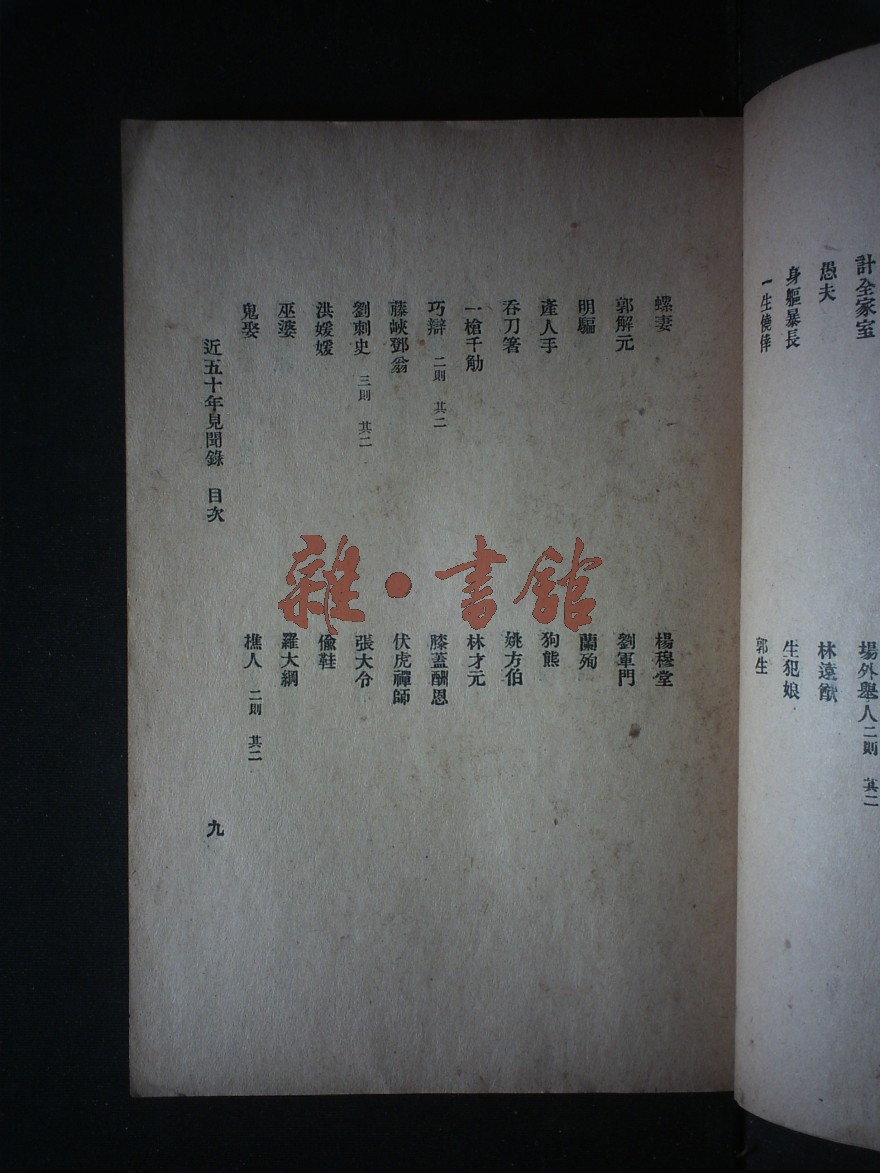 計全家室
場外舉人 二則 其二
愚夫
林遠猷
身軀暴長
生犯娘
一生僥倖
郭生
螺妻
楊穆堂
郭解元
劉軍門
明驅
蘭殉
產人手
狗熊
吞刀箸
姚方伯
一槍千觔
林才元
巧辯 二則 其二
膝蓋酬恩
藤峽鄧翁
伏虎禪師
劉刺史 三則 其二
張大令
洪媛媛
偸鞋
巫婆
羅大綱
鬼娶
樵人 二則 其二
近五十年見聞錄 目次
九
雜·書館